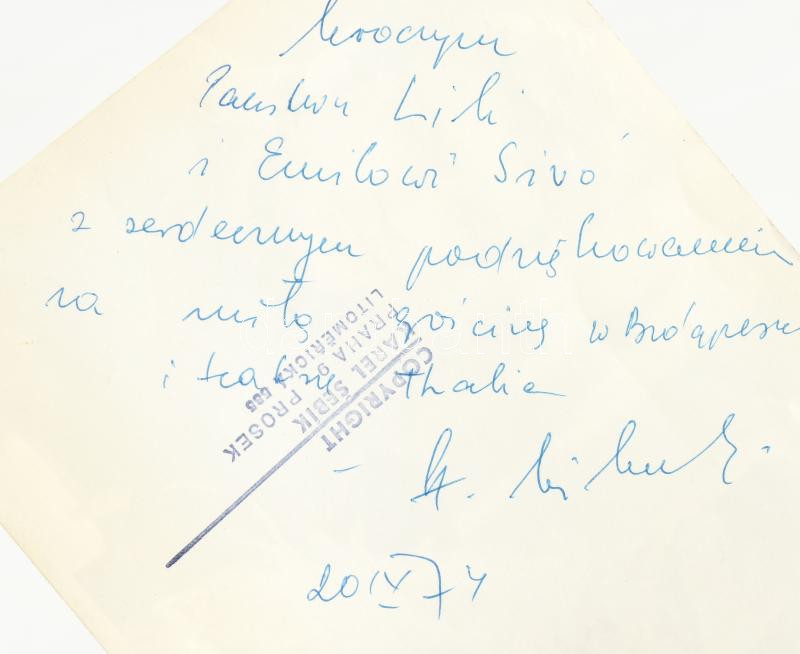 Uroczym
Państwu Lili
i Emilowi Sivó
z serdecznym podziękowaniem
za miłą gościnę w Budapeszcie
i teatrze Thalia
20 IX 74
COPYRIGHT
KAREL ŠEBÍK
PRAHA 9, PROSEK
LITOMĚŘICKÁ 585